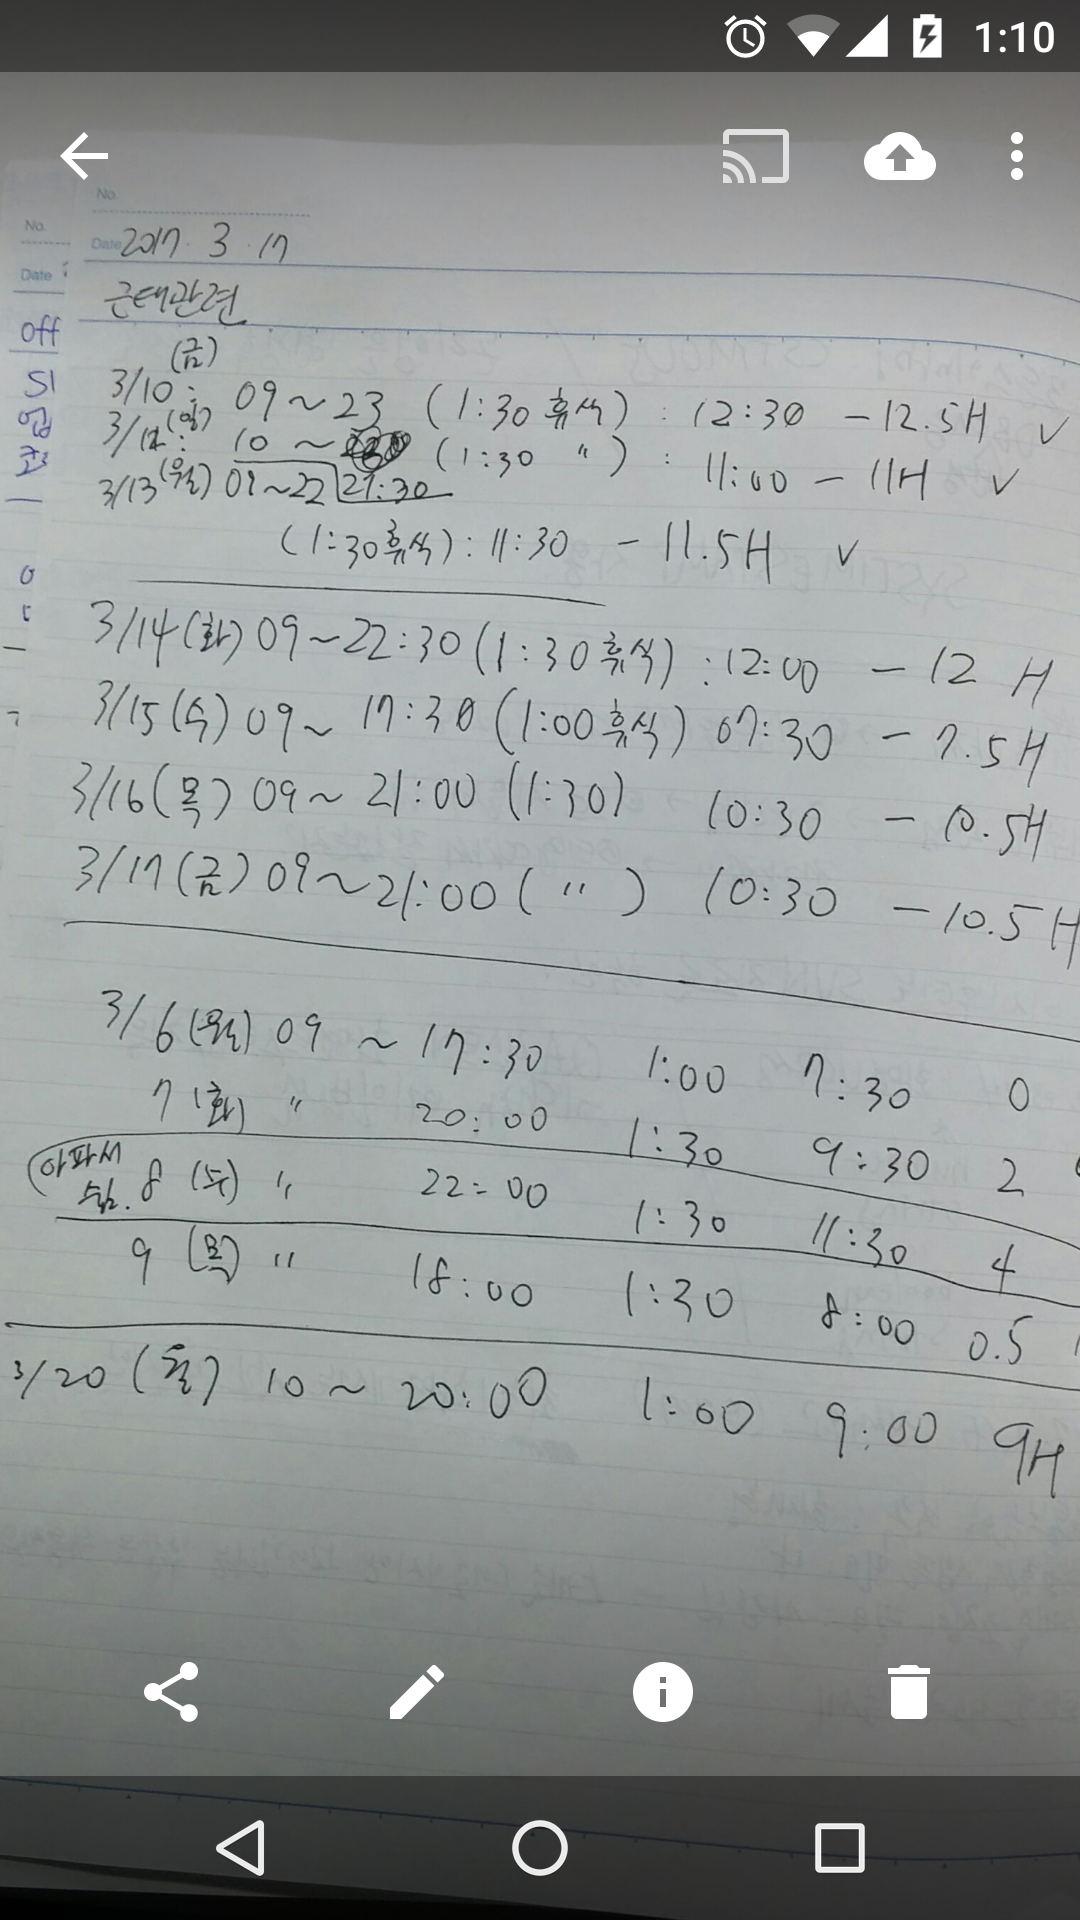 1:10
No.
Date 2017. 3. 17
No.
Date
근태관련
off
(금)
SI
3/10 : 09 ~ 23 (1:30 휴식) : 12:30 - 12.5H ✓
3/12 (일) : 10 ~ 21:30 (1:30 〃) : 11:00 - 11H ✓
3/13 (월) 09 ~ 22
(1:30 휴식) : 11:30 - 11.5H ✓
3/14 (화) 09 ~ 22:30 (1:30 휴식) : 12:00 - 12 H
3/15 (수) 09 ~ 17:30 (1:00 휴식) 07:30 - 7.5H
3/16 (목) 09 ~ 21:00 (1:30) 10:30 - 10.5H
3/17 (금) 09 ~ 21:00 ( 〃 ) 10:30 - 10.5H
3/6 (월) 09 ~ 17:30 1:00 7:30 0
7 (화) 〃 20:00 1:30 9:30 2
아파서
쉼. 8 (수) 〃 22:00 1:30 11:30 4
9 (목) 〃 18:00 1:30 8:00 0.5
3/20 (월) 10 ~ 20:00 1:00 9:00 9H